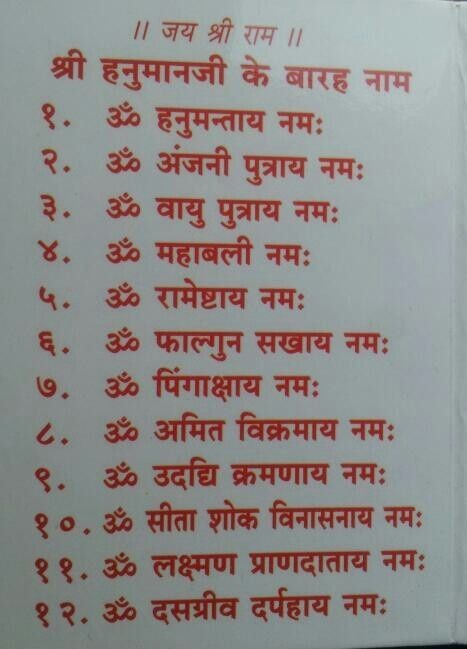 ॥ जय श्री राम ॥
श्री हनुमानजी के बारह नाम
१. ॐ हनुमन्ताय नमः
२. ॐ अंजनी पुत्राय नमः
३. ॐ वायु पुत्राय नमः
४. ॐ महाबली नमः
५. ॐ रामेष्टाय नमः
६. ॐ फाल्गुन सखाय नमः
७. ॐ पिंगाक्षाय नमः
८. ॐ अमित विक्रमाय नमः
९. ॐ उदद्यि क्रमणाय नमः
१०. ॐ सीता शोक विनासनाय नमः
११. ॐ लक्ष्मण प्राणदाताय नमः
१२. ॐ दसग्रीव दर्पहाय नमः